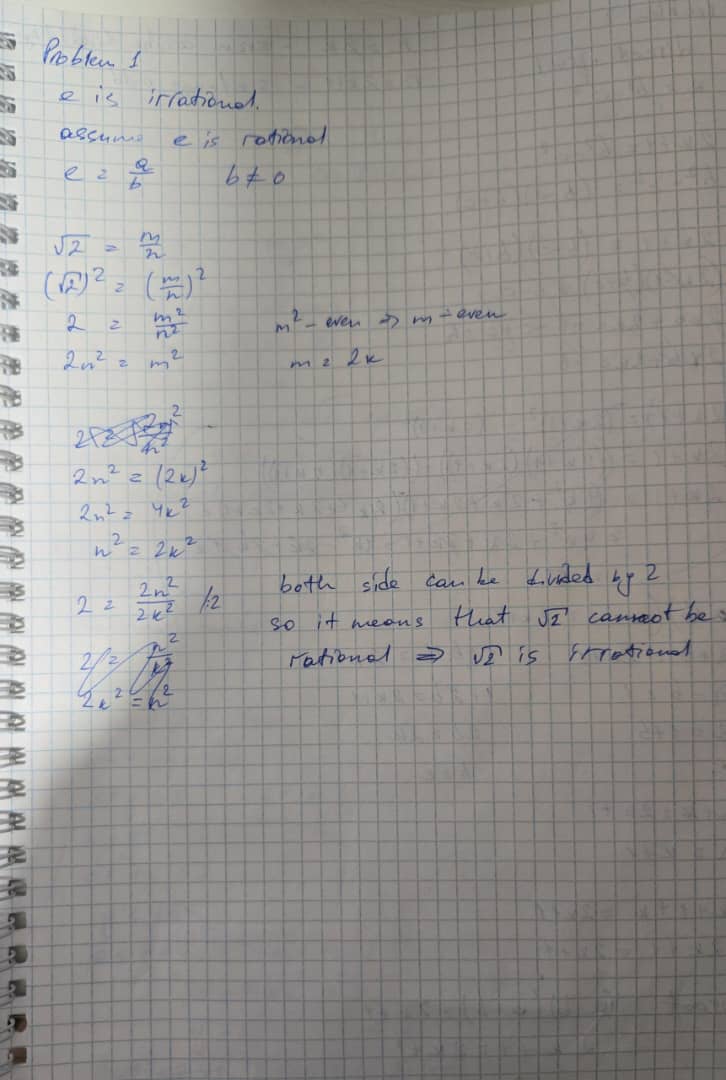 Problem 1
e is irrational.
assume e is rational
e = a/b b ≠ 0
√2 = m/n
(√2)² = (m/n)²
2 = m²/n² m² - even => m - even
2n² = m² m = 2k
2n² = (2k)²
2n² = 4k²
n² = 2k²
2 = 2n²/2k² /:2 both side can be divided by 2
so it means that √2 cannot be
rational => √2 is irrational
2k² = n²